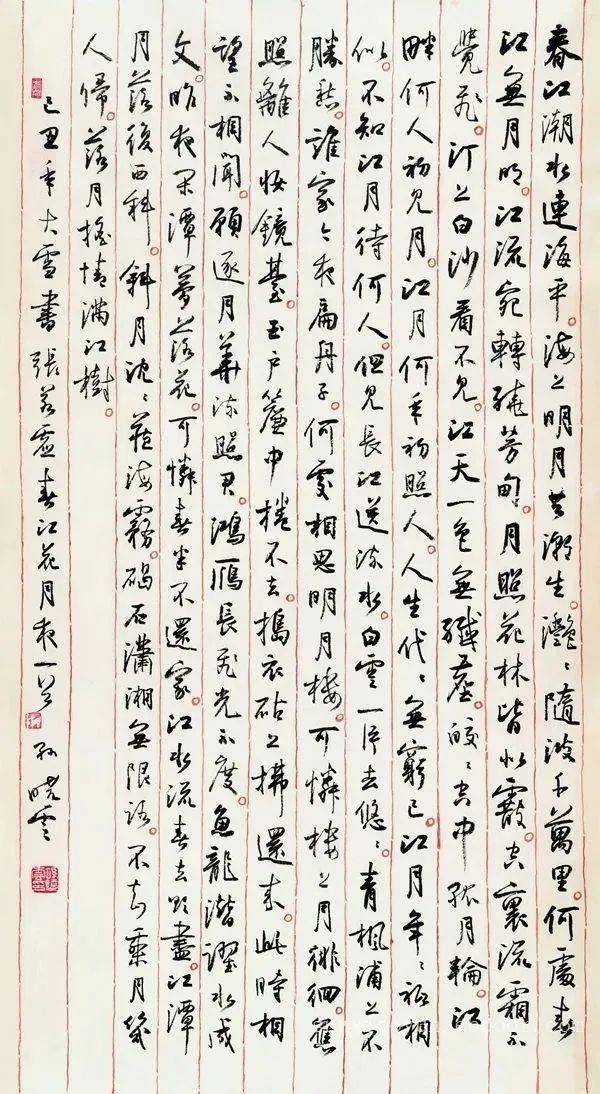 春江潮水連海平。海上明月共潮生。灧〻隨波千萬里。何處春
江無月明。江流宛轉繞芳甸。月照花林皆似霰。空裏流霜不
覺飛。汀上白沙看不見。江天一色無纖塵。皎〻空中孤月輪。江
畔何人初見月。江月何年初照人。人生代〻無窮已。江月年〻祇相
似。不知江月待何人。但見長江送流水。白雲一片去悠〻。青楓浦上不
勝愁。誰家今夜扁舟子。何處相思明月樓。可憐樓上月徘徊。應
照離人妝鏡臺。玉戶簾中捲不去。搗衣砧上拂還來。此時相
望不相聞。願逐月華流照君。鴻雁長飛光不度。魚龍潛躍水成
文。昨夜閑潭夢落花。可憐春半不還家。江水流春去欲盡。江潭
月落復西斜。斜月沈〻藏海霧。碣石瀟湘無限路。不知乘月幾
人歸。落月搖情滿江樹。
己丑年大雪書張若虛春江花月夜一首 孫曉雲